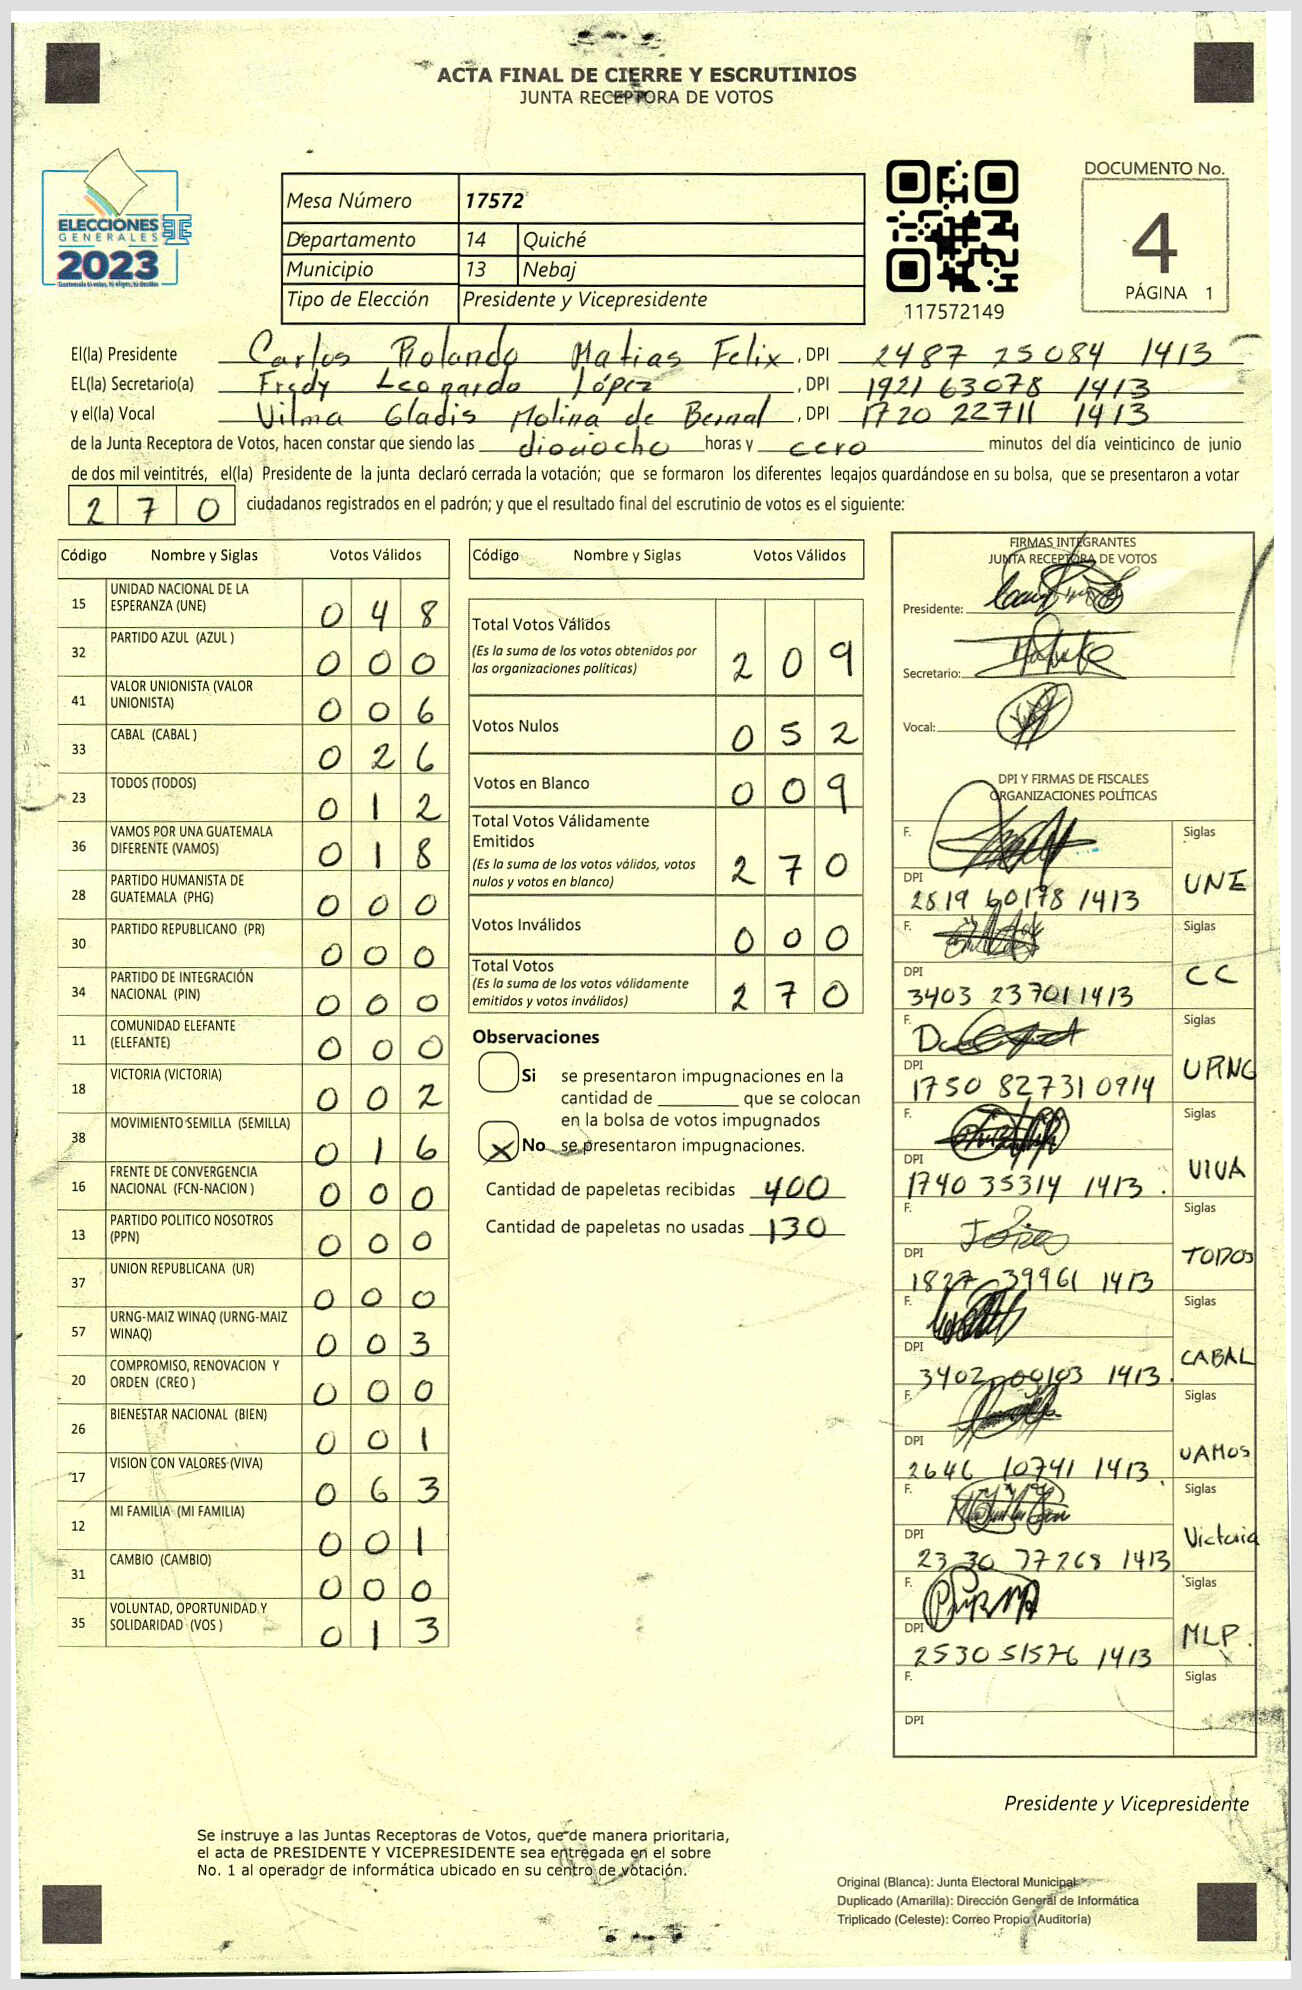 ACTA FINAL DE CIERRE Y ESCRUTINIOS
JUNTA RECEPTORA DE VOTOS
ELECCIONES
GENERALES
2023
Mesa Número 17572
Departamento 14 Quiché
Municipio 13 Nebaj
Tipo de Elección Presidente y Vicepresidente
117572149
DOCUMENTO No.
4
PÁGINA 1
El(la) Presidente Carlos Rolando Matias Felix, DPI 2487 25084 1413
EL(la) Secretario(a) Fredy Leonardo López, DPI 1921 63078 1413
y el(la) Vocal Vilma Gladis Molina de Bernal, DPI 1720 22711 1413
de la Junta Receptora de Votos, hacen constar que siendo las dieciocho horas y cero minutos del día veinticinco de junio
de dos mil veintitrés, el(la) Presidente de la junta declaró cerrada la votación; que se formaron los diferentes legajos guardándose en su bolsa, que se presentaron a votar
270 ciudadanos registrados en el padrón; y que el resultado final del escrutinio de votos es el siguiente:
Código Nombre y Siglas Votos Válidos
15 UNIDAD NACIONAL DE LA ESPERANZA (UNE) 0 4 8
32 PARTIDO AZUL (AZUL ) 0 0 0
41 VALOR UNIONISTA (VALOR UNIONISTA) 0 0 6
33 CABAL (CABAL ) 0 2 6
23 TODOS (TODOS) 0 1 2
36 VAMOS POR UNA GUATEMALA DIFERENTE (VAMOS) 0 1 8
28 PARTIDO HUMANISTA DE GUATEMALA (PHG) 0 0 0
30 PARTIDO REPUBLICANO (PR) 0 0 0
34 PARTIDO DE INTEGRACIÓN NACIONAL (PIN) 0 0 0
11 COMUNIDAD ELEFANTE (ELEFANTE) 0 0 0
18 VICTORIA (VICTORIA) 0 0 2
38 MOVIMIENTO SEMILLA (SEMILLA) 0 1 6
16 FRENTE DE CONVERGENCIA NACIONAL (FCN-NACION ) 0 0 0
13 PARTIDO POLITICO NOSOTROS (PPN) 0 0 0
37 UNION REPUBLICANA (UR) 0 0 0
57 URNG-MAIZ WINAQ (URNG-MAIZ WINAQ) 0 0 3
20 COMPROMISO, RENOVACION Y ORDEN (CREO ) 0 0 0
26 BIENESTAR NACIONAL (BIEN) 0 0 1
17 VISION CON VALORES (VIVA) 0 6 3
12 MI FAMILIA (MI FAMILIA) 0 0 1
31 CAMBIO (CAMBIO) 0 0 0
35 VOLUNTAD, OPORTUNIDAD Y SOLIDARIDAD (VOS ) 0 1 3
Código Nombre y Siglas Votos Válidos
Total Votos Válidos 2 0 9
(Es la suma de los votos obtenidos por
las organizaciones políticas)
Votos Nulos 0 5 2
Votos en Blanco 0 0 9
Total Votos Válidamente
Emitidos 2 7 0
(Es la suma de los votos válidos, votos
nulos y votos en blanco)
Votos Inválidos 0 0 0
Total Votos 2 7 0
(Es la suma de los votos válidamente
emitidos y votos inválidos)
Observaciones
Si se presentaron impugnaciones en la
cantidad de ________ que se colocan
en la bolsa de votos impugnados
X No se presentaron impugnaciones.
Cantidad de papeletas recibidas 400
Cantidad de papeletas no usadas 130
FIRMAS INTEGRANTES
JUNTA RECEPTORA DE VOTOS
Presidente:
Secretario:
Vocal:
DPI Y FIRMAS DE FISCALES
ORGANIZACIONES POLÍTICAS
F. Siglas
DPI 2819 60178 1413 UNE
F. Siglas
DPI 3403 23701 1413 CC
F. Siglas
DPI 1750 82731 0914 URNG
F. Siglas
DPI 1740 35314 1413. VIVA
F. Siglas
DPI 1827 39961 1413 TODOS
F. Siglas
DPI 3402 00103 1413. CABAL
F. Siglas
DPI 2646 10741 1413. VAMOS
F. Siglas
DPI 23 30 77268 1413 Victoria
F. Siglas
DPI 2530 51576 1413 MLP.
F. Siglas
DPI
Presidente y Vicepresidente
Se instruye a las Juntas Receptoras de Votos, que de manera prioritaria,
el acta de PRESIDENTE Y VICEPRESIDENTE sea entregada en el sobre
No. 1 al operador de informática ubicado en su centro de votación.
Original (Blanca): Junta Electoral Municipal
Duplicado (Amarilla): Dirección General de Informática
Triplicado (Celeste): Correo Propio (Auditoría)